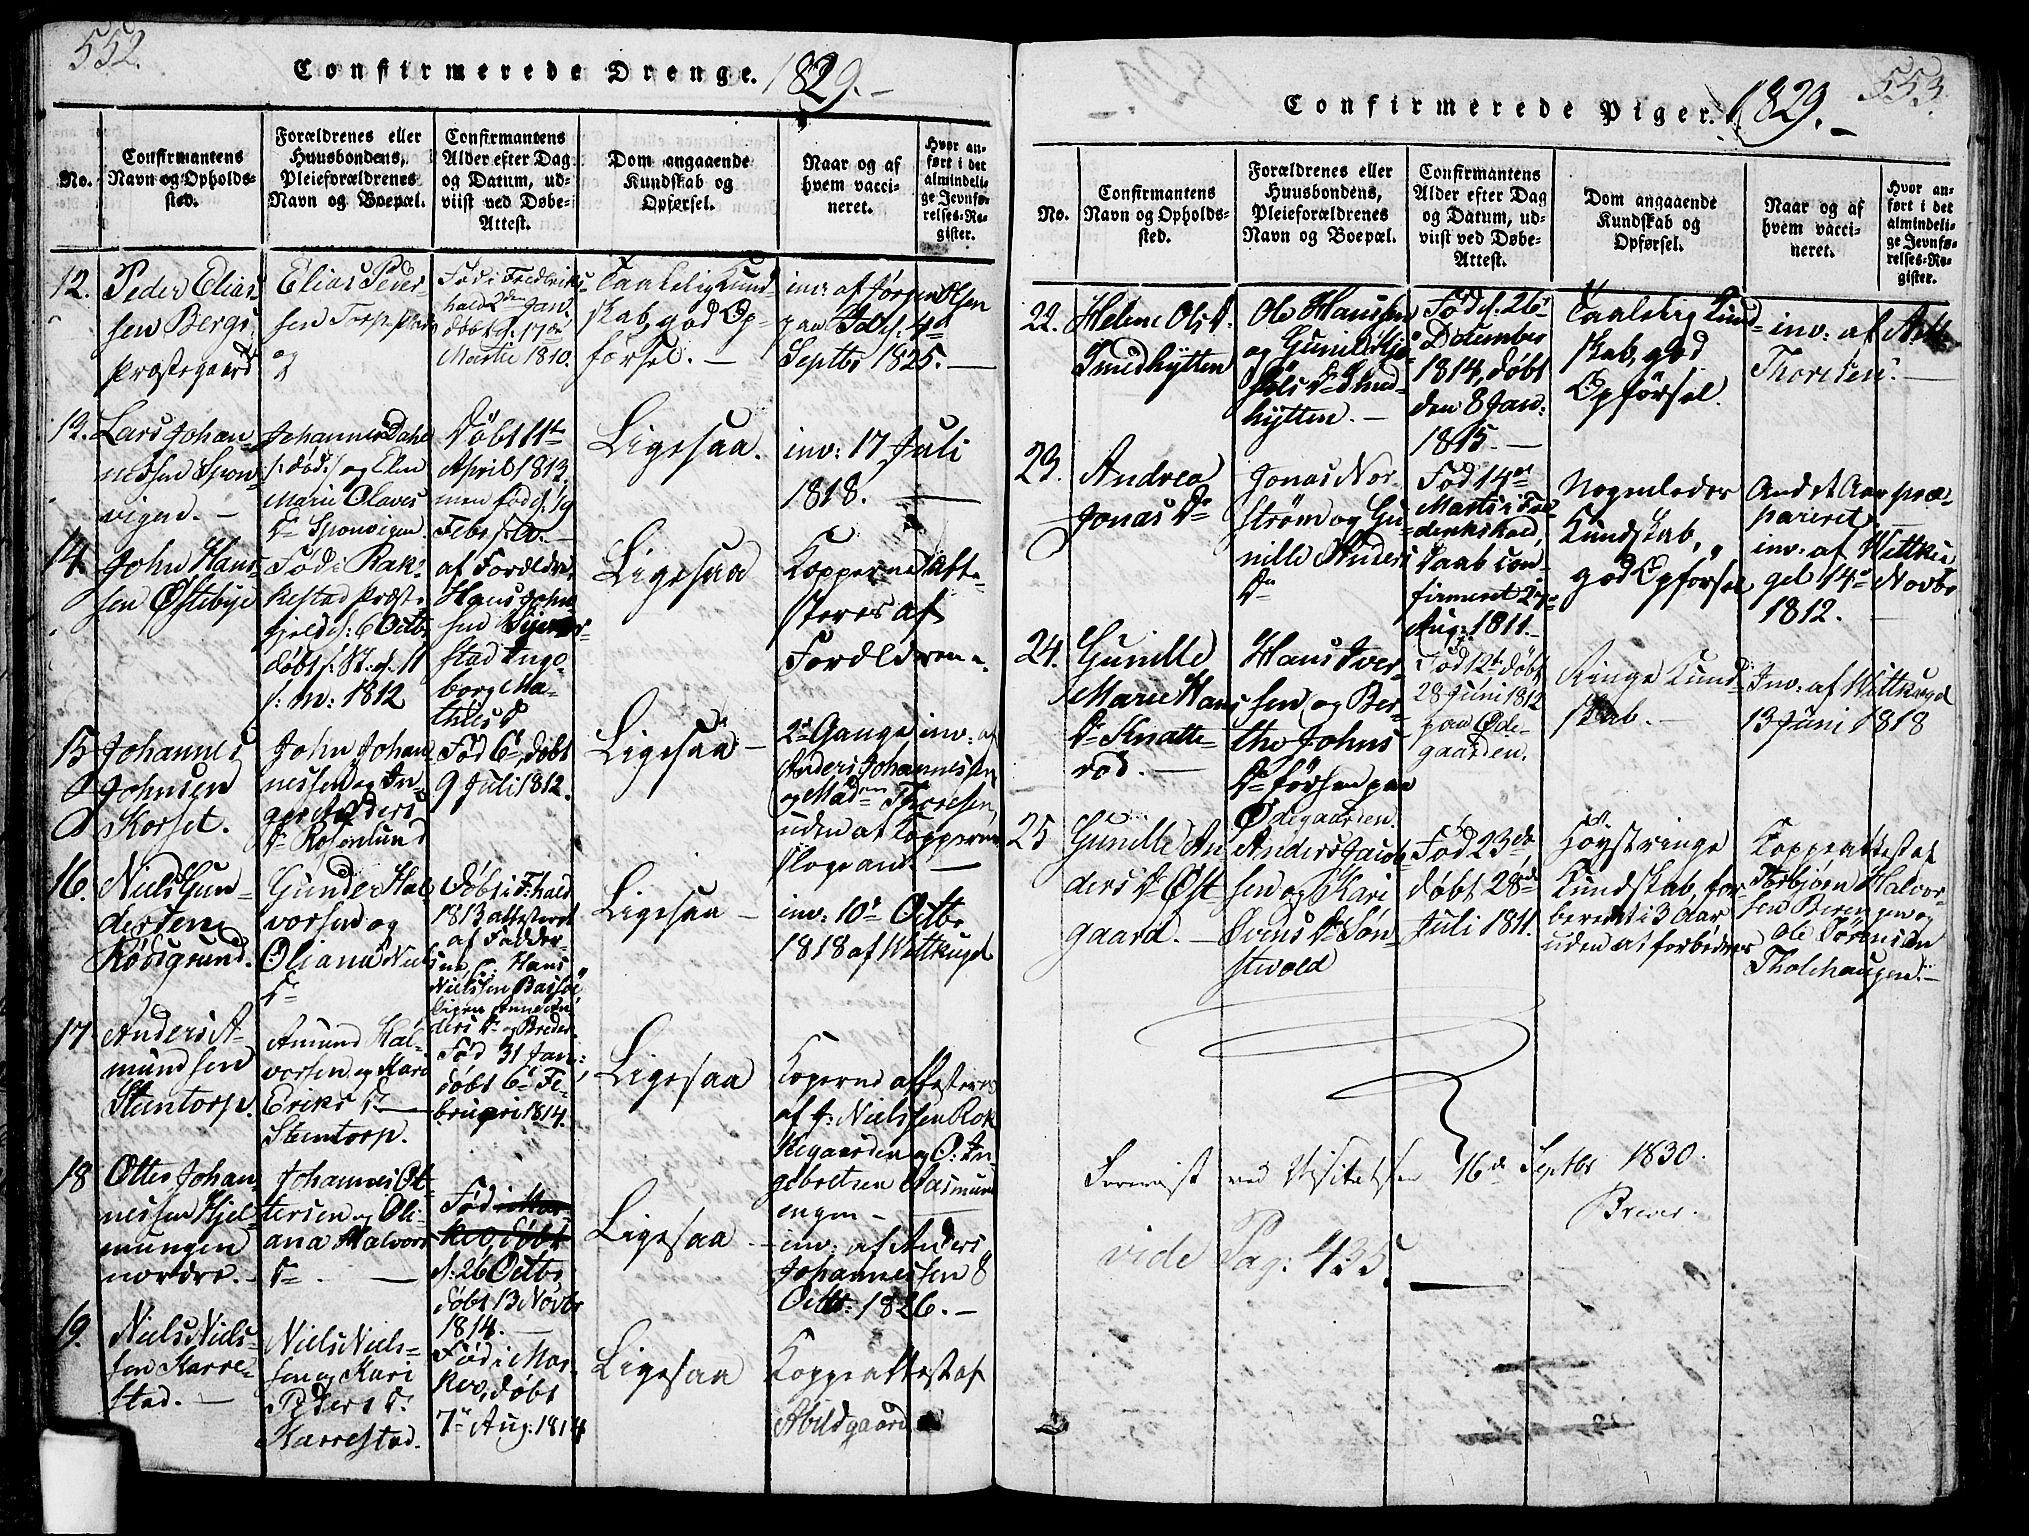 552.
Confirmerede Drenge. 1829.-
No.
Confirmantens
Navn og Opholds-
sted.
Forældrenes eller
Huusbondens,
Pleieforældrenes
Navn og Boepæl.
Confirmantens
Alder efter Dag
og Datum, ud-
viist ved Døbe-
Attest.
Dom angaaende
Kundskab og
Opførsel.
Naar og af
hvem vacci-
neret.
Hvor an-
ført i det
almindeli-
ge Jevnfø-
relses-Re-
gister.
12.
Peder Elias-
sen Bergs
Præstegaard
Elias Peder-
sen Torp
og
Fød i Fredriks-
hald 2den Jan.
døbt d. 17de
Martii 1810.
Taalelig Kund-
skab, god Op-
førsel. -
inv: af Jørgen Olsen
paa Idd d. 4de
Septbr 1825. -
13.
Lars Johan-
nessen Spon-
vigen. -
Johannes Dahl
/: død :/ og Elen
Marie Olaves
Dr Sponvigen.
Døbt 11te
April 1813,
men fød d. 19
Febr. s. A. -
Ligesaa.
inv: 17 Juli
1818. -
14.
John Han-
sen Østebye
Fød i Rak-
kestad Præste-
gjeld d: 6 Octbr
døbt s. St. d. 11
s: M: 1812
af Forældre
Hans John
sen
stad Inge-
borg Ma-
thies Dr
Ligesaa
Kopperne atte-
steres af
Forældrene.
15
Johannes
Johnsen
Korset.
John Johan
nessen og In-
ger Anders
Dr Rosenlund
Fød 6te, døbt
9 Juli 1812.
Ligesaa -
2de Gange inv: af
Anders Johannessen
og Madm Thoresen,
uden at Kopperne
sloge an. -
16.
Niels Gun-
dersen
Rødsgrund.
Gunder Hal-
vorsen og
Oliana Niels
Dr
Døbt i Fr:hald
1813 attesteret
af Fadder-
sne C. Hans
Nielssen Bassøe
Pigen Anne An-
ders Dr og Breder.
Ligesaa -
inv: 10de Octbr
1818 af Wittkugel
17.
Anders A-
mundsen
Steentorp.
Amund Hal-
vorsen og Kari
Eriks Dr
Steentorp.
Fød 31 Jan:
døbt 6te Fe-
bruari 1814.
Ligesaa
Koperne attesteres
af J: Nielssen Rok
kegaarden og O: In-
gebretsen Aasmund
engen -
18
Otter Johan
nessen Kjel-
mungen
nordre. -
Johannes Ot-
tersen og Oli-
ana Halvors
Dr -
Fød
d: 26 Octbr
døbt 13 Novbr
1814. -
Ligesaa
inv: af Anders
Johannessen 8
Octbr: 1826. -
19.
Niels Niels-
sen Karre-
stad. -
Niels Niels-
sen og Kari
Peders Dr
Karrestad.
Fød i Mar-
ker, døbt
7de Aug: 1814
Ligesaa
Koppeattest af
Abildgaard
553.
Confirmerede Piger. 1829.-
No.
Confirmantens
Navn og Opholds-
sted.
Forældrenes eller
Huusbondens,
Pleieforældrenes
Navn og Boepæl.
Confirmantens
Alder efter Dag
og Datum, ud-
viist ved Døbe-
Attest.
Dom angaaende
Kundskab og
Opførsel.
Naar og af
hvem vacci-
neret.
Hvor an-
ført i det
almindeli-
ge Jevnfø-
relses-Re-
gister.
22.
Helene Ols Dr
Smedhytten
Ole Hansen
og Gunild
Ols Dr Smed-
hytten. -
Fød d. 26de
December
1814, døbt
den 8 Jan:
1815. -
Taalelig Kund-
skab, god
Opførsel.
inv: af
Thoresen. -
23.
Andrea
Jonas Dr
Jonas Nor
strøm og Gu-
nille Anders
Dr
Fød 14de
Marts i Fre-
derikshald,
Daab con-
firmeret 27de
Aug: 1811. -
Nogenledes
Kundskab,
god Opførsel
Andet Aar præ-
pareret. -
inv: af Wittku-
gel 14de Novbr
1812. -
24.
Gunille
Marie Hans
Dr Knatte-
rød. -
Hans Iver-
sen og Ber-
the Johns
Dr førsen paa
Ødegaarden.
Fød 12te, døbt
28 Juni 1812
paa Øde-
gaarden.
Ringe Kund
skab. -
Inv: af Wittkugel
13 Juni 1818
25
Gunille An
ders Dr Øst
gaard. -
Anders Jacob-
sen og Kari
Svens Dr Søn-
stevold
Fød 23de
døbt 28de
Juli 1811.
Høystringe
Kundskab, for-
beredt i 3 Aar
uden at forbedres
Koppeattest af
Torbjørn Halvor-
sen Berengen og
Ole Sørensen
Tholehaugen. -
Foreviist ved Visitatsen 16de Septbr 1830.
vide Pag: 435.